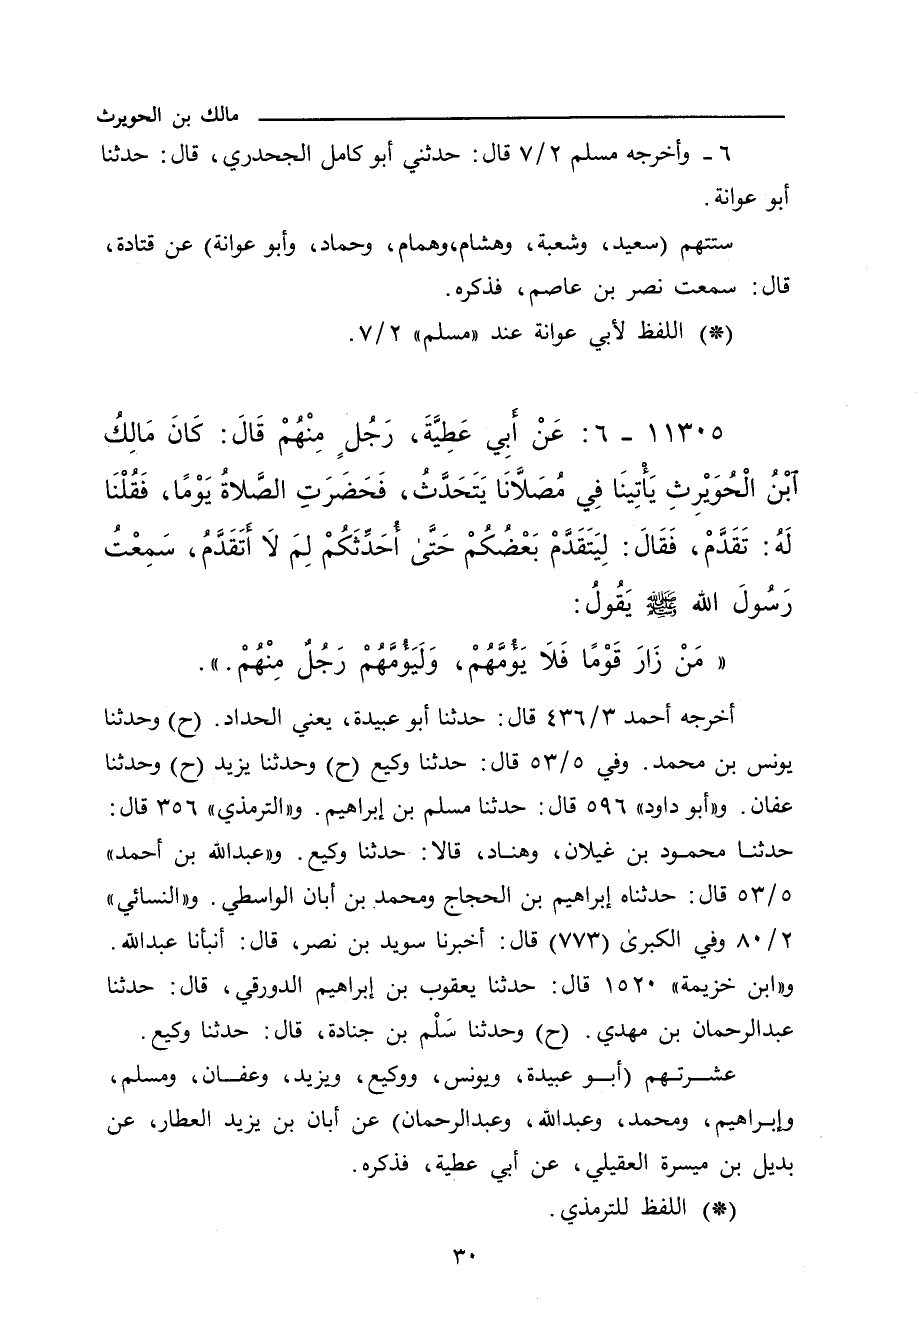 مالك بن الحويرث
٦ ـ وأخرجه مسلم ٧/٢ قال: حدثني أبو كامل الجحدري، قال: حدثنا
أبو عوانة.
ستتهم (سعيد، وشعبة، وهشام،وهمام، وحماد، وأبو عوانة) عن قتادة،
قال: سمعت نصر بن عاصم، فذكره.
(*) اللفظ لأبي عوانة عند «مسلم» ٧/٢.
١١٣٠٥ ـ ٦: عَنْ أَبِي عَطِيَّةَ، رَجُلٍ مِنْهُمْ قَالَ: كَانَ مَالِكُ
آبْنُ الْحُوَيْرِثِ يَأْتِينَا فِي مُصَلَّانَا يَتَحَدَّثُ، فَحَضَرَتِ الصَّلاةُ يَوْمًا، فَقُلْنَا
لَهُ: تَقَدَّمْ، فَقَالَ: لِيَتَقَدَّمْ بَعْضُكُمْ حَتَّىٰ أُحَدِّثَكُمْ لِمَ لَا أَتَقَدَّمُ، سَمِعْتُ
رَسُولَ الله ﷺ يَقُولُ:
« مَنْ زَارَ قَوْمًا فَلَا يَؤُمَّهُمْ، وَلْيَؤُمَّهُمْ رَجُلٌ مِنْهُمْ.».
أخرجه أحمد ٤٣٦/٣ قال: حدثنا أبو عبيدة، يعني الحداد. (ح) وحدثنا
يونس بن محمد. وفي ٥٣/٥ قال: حدثنا وكيع (ح) وحدثنا يزيد (ح) وحدثنا
عفان. و«أبو داود» ٥٩٦ قال: حدثنا مسلم بن إبراهيم. و«الترمذي» ٣٥٦ قال:
حدثنا محمود بن غيلان، وهناد، قالا: حدثنا وكيع. و«عبدالله بن أحمد»
٥٣/٥ قال: حدثناه إبراهيم بن الحجاج ومحمد بن أبان الواسطي. و«النسائي»
٨٠/٢ وفي الكبرىٰ (٧٧٣) قال: أخبرنا سويد بن نصر، قال: أنبأنا عبدالله.
و«ابن خزيمة» ١٥٢٠ قال: حدثنا يعقوب بن إبراهيم الدورقي، قال: حدثنا
عبدالرحمان بن مهدي. (ح) وحدثنا سَلْم بن جنادة، قال: حدثنا وكيع.
عشرتهم (أبو عبيدة، ويونس، ووكيع، ويزيد، وعفان، ومسلم،
وإبراهيم، ومحمد، وعبدالله، وعبدالرحمان) عن أبان بن يزيد العطار، عن
بديل بن ميسرة العقيلي، عن أبي عطية، فذكره.
(*) اللفظ للترمذي.
٣٠